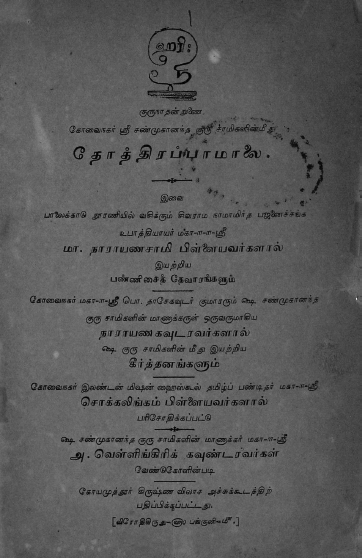 ஹரிஃ
குருநாதன் றுணை.
கோவைநகர் ஸ்ரீ சண்முகானந்த குரு சாமிகளின்மீது
தோத்திரப்பாமாலை.
இவை
பாலைக்காடு நூரணியில் வதிக்கும் சிவராம நாமாமிர்த பஜனைச்சங்க
உபாத்தியாயர் மகா-ஈ-ஸ்ரீ
மா. நாராயணசாமி பிள்ளையவர்களால்
இயற்றிய
பண்ணிசைத் தேவாரங்களும்
கோவைநகர் மகா-ஈ-ஸ்ரீ பொ. தாசேகவுடர் குமாரரும் ஷை சண்முகானந்த
குரு சாமிகளின் மாணாக்கருள் ஒருவருமாகிய
நாராயணகவுடரவர்களால்
ஷை குரு சாமிகளின் மீது இயற்றிய
கீர்த்தனங்களும்
கோவைநகர் இலண்டன் மிஷன் ஹைஸ்கூல் தமிழ்ப் பண்டிதர் மகா-ஈ-ஸ்ரீ
சொக்கலிங்கம் பிள்ளையவர்களால்
பரிசோதிக்கப்பட்டு
ஷை சண்முகானந்த குரு சாமிகளின் மாணாக்கர் மகா-ஈ-ஸ்ரீ
அ. வெள்ளிங்கிரிக் கவுண்டரவர்கள்
வேண்டுகோளின்படி
கோயமுத்தூர் கிருஷ்ண விலாச அச்சுக்கூடத்திற்
பதிப்பிக்கப்பட்டது.
[விரோதிகிருது-௵ பங்குனி-௴.]